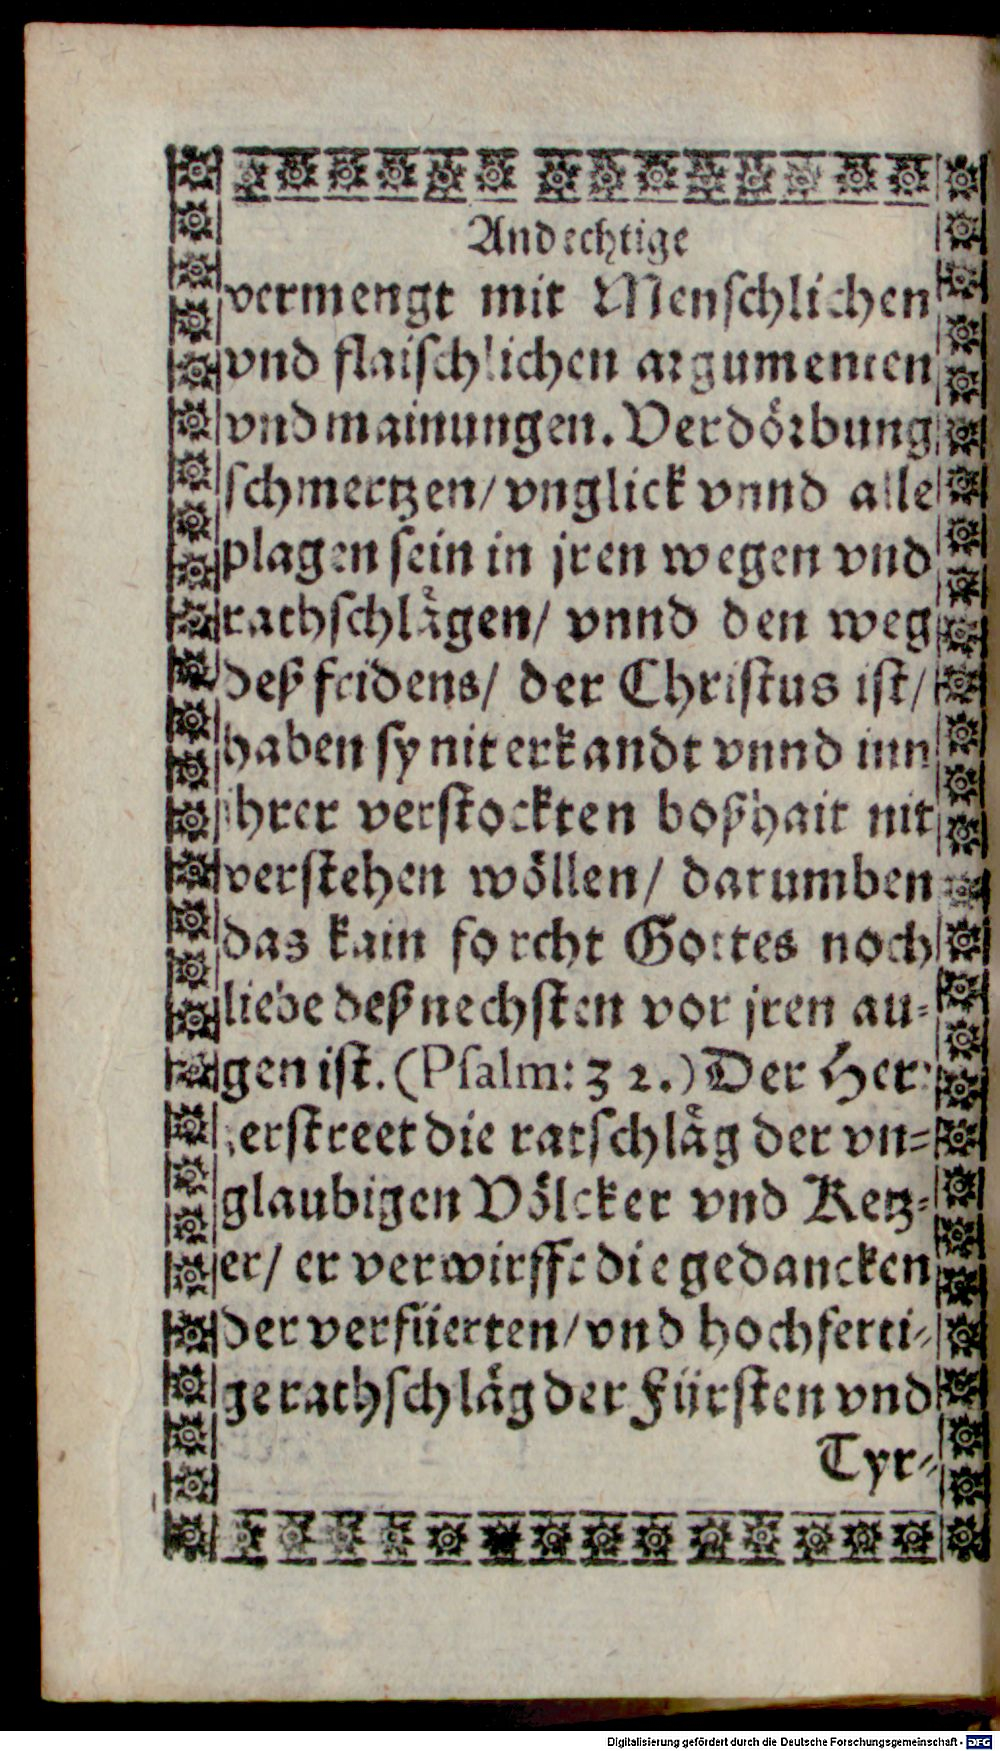 Andechtige
vermengt mit Menschlichen
vnd flaischlichen argumenten
vnd mainungen. Verdörbung
schmertzen/ vnglick vnnd alle
plagen sein in jren wegen vnd
rathschlägen/ vnnd den weg
deß fridens/ der Christus ist/
haben sy nit erkandt vnnd inn
ihrer verstockten boßhait nit
verstehen wöllen/ darumben
das kain forcht Gottes noch
liebe deß nechsten vor jren au-
gen ist. (Psalm: 32.) Der Herr
zerstreet die ratschläg der vn-
glaubigen Völcker vnd Ketz-
er/ er verwirfft die gedancken
der verfüerten/ vnd hochferti-
ge rathschläg der Fürsten vnd
Tyr-
Digitalisierung gefördert durch die Deutsche Forschungsgemeinschaft - DFG